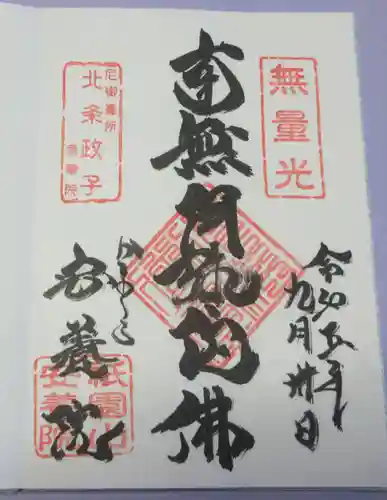 無量光
令和五年
九月卅日
南無阿弥陀佛
尼御墓所
北条政子
安養院
かまくら
安養院
祇園山
安養院